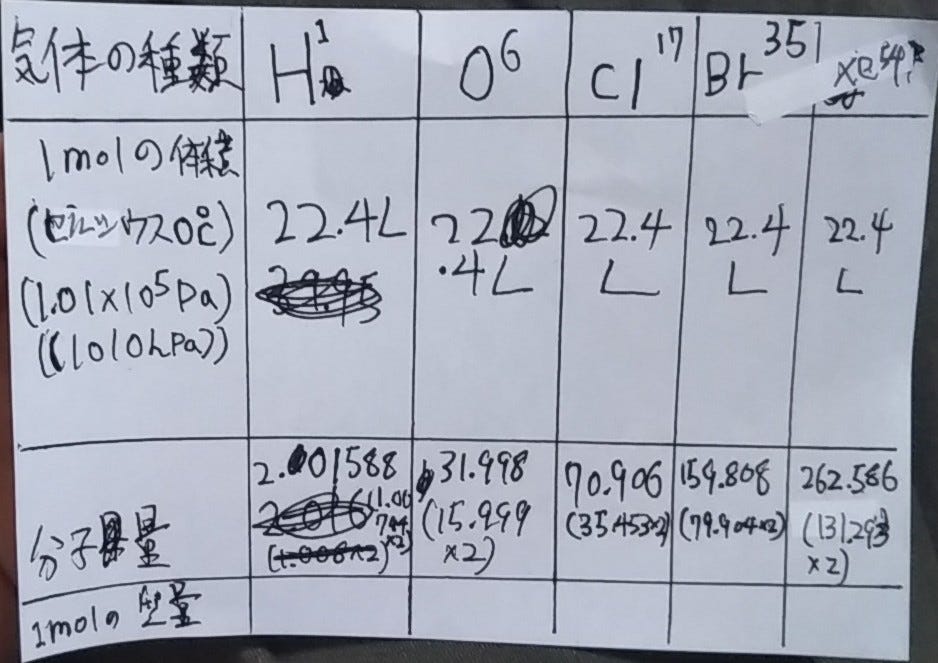 気体の種類 H¹ O⁶ Cl¹⁷ Br³⁵ Xe⁵⁴
1molの体積
(セルシウス0℃) 22.4L 22 22.4 22.4 22.4
(1.01×10⁵Pa) .4L L L L
((1010hPa))
2.01588 31.998 70.906 159.808 262.586
(1.00794×2) (15.999×2) (35.453×2) (79.904×2) (131.293×2)
(1.008×2)
分子量
1molの 量